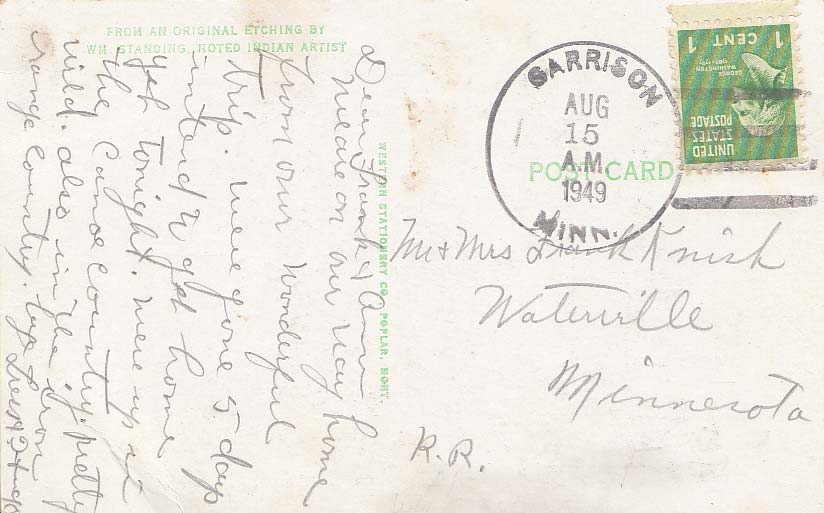 FROM AN ORIGINAL ETCHING BY
WM. STANDING, NOTED INDIAN ARTIST
Dear Frank & Ann
We are on our way home
from our wonderful
trip. were gone 5 days
intend to get home
yet tonight. were up in
the Canoe Country. pretty
wild. also in the iron
range country.
WESTERN STATIONERY CO., POPLAR, MONT.
POST CARD
GARRISON
AUG
15
A.M.
1949
MINN.
UNITED
STATES
POSTAGE
GEORGE
WASHINGTON
1789-1797
1 CENT 1
Mr & Mrs Frank Knish
Waterville
Minnesota
R.R.